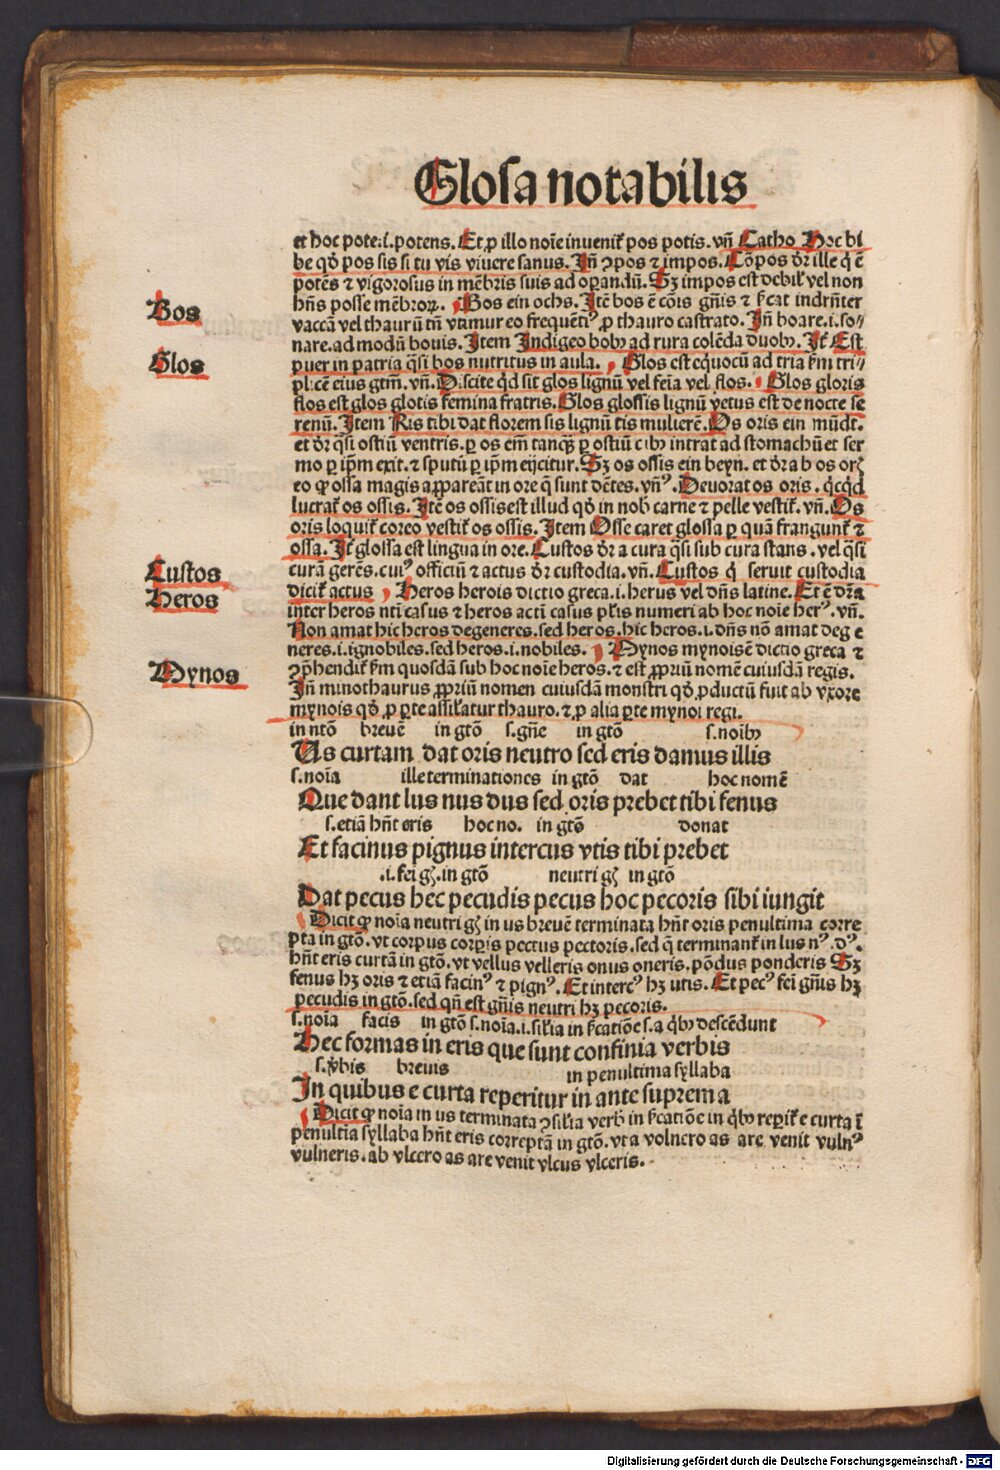 Glosa notabilis
et hoc pote.i.potens. Et ꝓ illo noīe inuenit᷒ pos potis. vñ Catho Hoc bi
be qḋ pos sis si tu vis viuere sanus. Iñ ꝯpos ⁊ impos. Cōpos d̄r ille q̇ ē
potēs ⁊ vigorosus in mēbris suis ad oꝑandū. Sꝫ impos est debil᷒ vel non
hñs posse mēbroꝝ. Bos ein ochs. Itē bos ē cōis gn̄is ⁊ ſcat indrn̄ter
Bos
vaccā vel thaurū tñ vtimur eo frequēti᷒ ꝓ thauro castrato. Iñ boare.i.so-
nare.ad modū bouis. Item Indigeo bobꝫ ad rura colēda duobꝫ. It᷒ Est
puer in patria q̄si bos nutritus in aula. Glos est eq̇uocū ad tria ẜm tri//
Glos
plicē eius gtm̄. vñ. Discite qḋ sit glos lignū vel feīa vel flos. Glos gloris
flos est glos glotis femina fratris. Glos glossis lignū vetus est de nocte se
renū. Item Ris tibi dat florem sis lignū tis mulierē. Os oris ein mūdt.
et d̄r q̄si ostiū ventris. ꝑ os em̄ tanqꝫ ꝑ ostiū cibꝫ intrat ad stomachū et ser
mo ꝑ ip̄m exit. ⁊ sputū ꝑ ip̄m eijcitur. Sꝫ os ossis ein beyn. et d̄r a b os orꝫ
eo ꝙ ossa magis aꝑpareāt in ore q̄ sunt dētes. vñ᷒. Deuorat os oris. q̇cq̇d
lucrat᷒ os ossis. Itē os ossis est illud qḋ in nob̄ carne ⁊ pelle vestit᷒. vñ. Os
oris loquit᷒ coreo vestit᷒ os ossis. Item Osse caret glossa ꝑ quā frangunt᷒ ⁊
ossa. It᷒ glossa est lingua in ore. Custos d̄r a cura q̄si sub cura stans. vel q̄si
Custos
curā gerēs. cui᷒ officiū ⁊ actus d̄r custodia. vñ. Custos q̇ seruit custodia
dicit᷒ actus Heros herois dictio greca.i. herus vel dn̄s latine. Et ē dr̄a
Heros
inter heros nt̄i casus ⁊ heros actī casus pl᷒is numeri ab hoc noīe her᷒. vñ.
Non amat hic heros degeneres. sed heros. hic heros.i. dn̄s nō amat deg e
neres.i.ignobiles. sed heros.i. nobiles. Mynos mynois ē dictio greca ⁊
Mynos
ꝯp̄hendit᷒ ẜm quosdā sub hoc noīe heros. ⁊ est ꝓpriū nomē cuiusdā regis.
Iñ minothaurus ꝓpriū nomen cuiusdā monstri qḋ ꝓductū fuit ab vxore
mynois qḋ ꝓ ꝑte assil᷒atur thauro. ⁊ ꝓ alia ꝑte mynoi regi.
in ntō breuē in gtō s.gn̄e in gtō s.noibꝫ
Us curtam dat oris neutro sed eris damus illis
s.noīa ille terminationes in gtō dat hoc nomē
Que dant lus nus dus sed oris prebet tibi fenus
s.etiā hn̄t eris hoc no. in gtō donat
Et facinus pignus intercus vtis tibi prebet
.i.fei gꝫ.in gtō neutri gꝫ in gtō
Dat pecus hec pecudis pecus hoc pecoris sibi iungit
Dicit ꝙ noīa neutri gꝫ in us breuē terminata hn̄t oris penultima corre
pta in gtō. vt corpus corꝑis pectus pectoris. sed q̄ terminant᷒ in lus n᷒.d᷒.
hn̄t eris curtā in gtō. vt vellus velleris onus oneris. pōdus ponderis Sꝫ
fenus hꝫ oris ⁊ etiā facin᷒ ⁊ pign᷒. Et interc᷒ hꝫ utis. Et pec᷒ fei gn̄is hꝫ
pecudis in gtō. sed qn̄ est gn̄is neutri hꝫ pecoris.
s.noīa facis in gtō s.noīa.i.sil᷒ia in ſcatiōe s.a q̇bꝫ descēdunt
Hec formas in eris que sunt confinia verbis
s.v̄bis breuis in penultima syllaba
In quibus e curta reperitur in ante suprema
Dicit ꝙ noīa in us terminata ꝯsil᷒ia verb᷒ in ſcatiōe in q̇bꝫ reꝑit᷒ e curta ī
penultīa syllaba hn̄t eris correptā in gtō. vt a volnero as are venit vuln᷒
vulneris. ab vlcero as are venit vlcus vlceris.
Digitalisierung gefördert durch die Deutsche Forschungsgemeinschaft - DFG